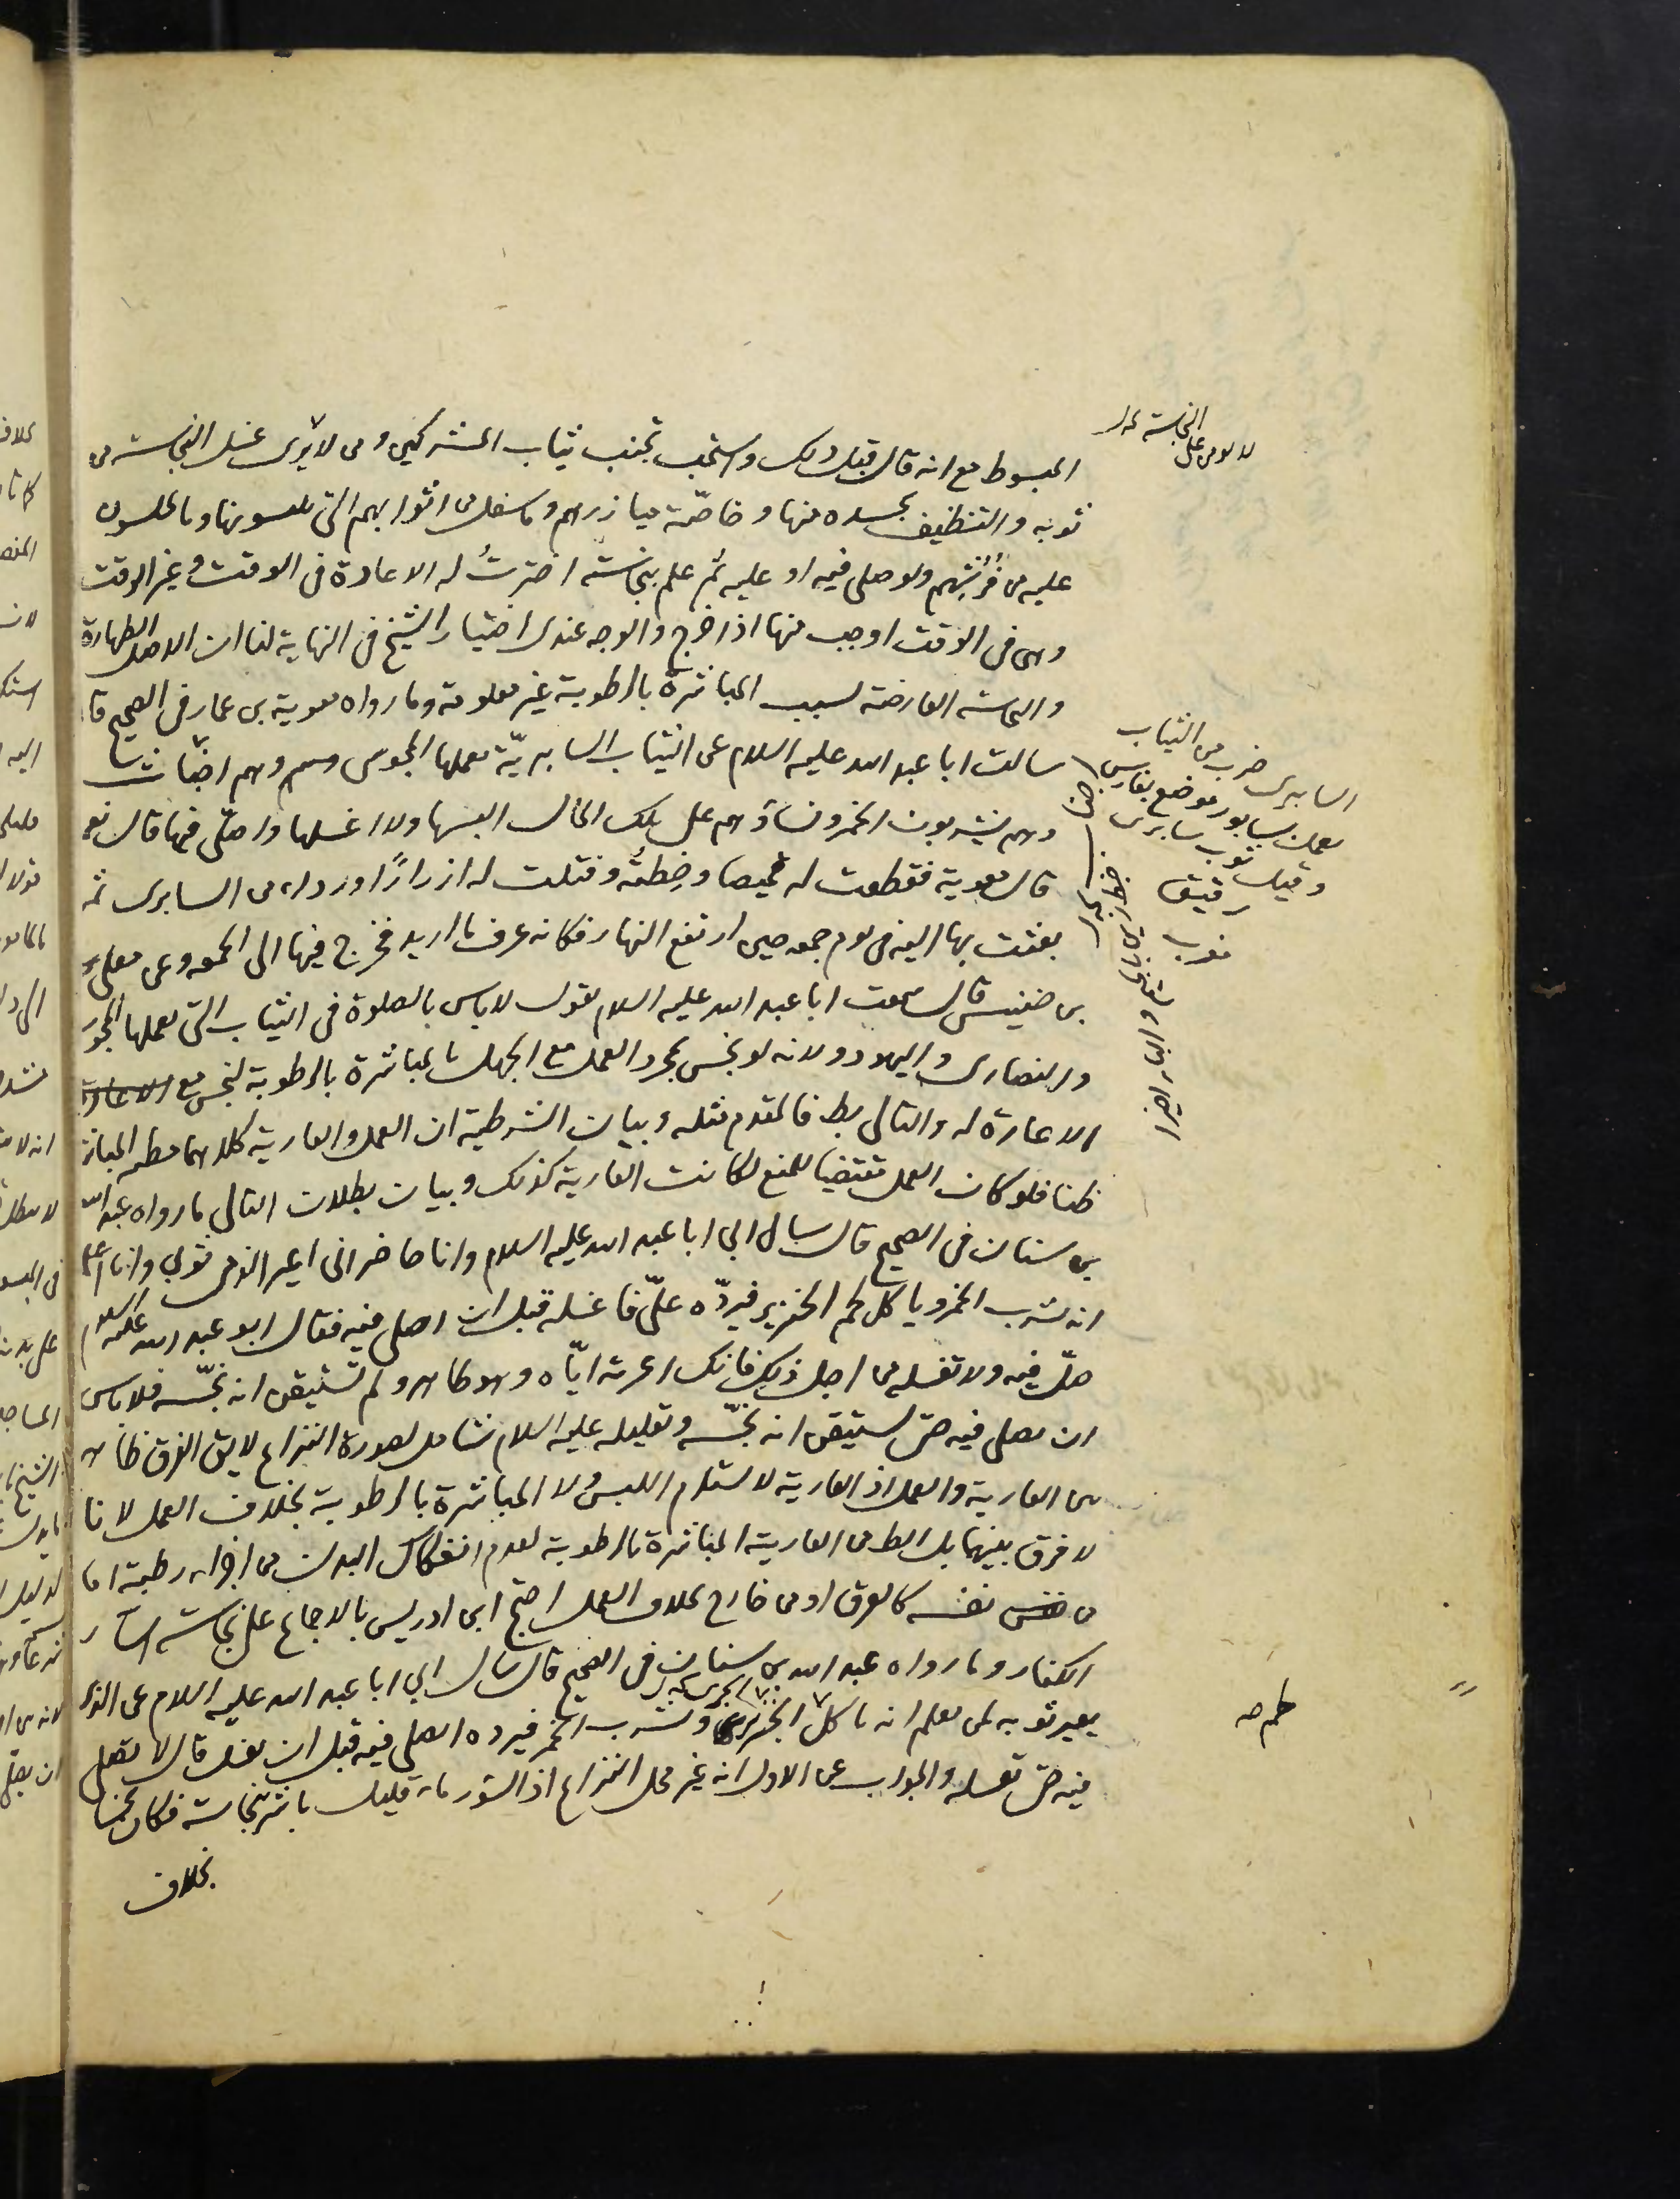 المبسوط مع انه قال قبيل ذلك واستحب تجنب ثياب المشركين ومن لا يرى غسل النجاسة من
ثوبه والتنظيف بجسده منها وخاصّة ميازرهم وما سفل من اثوابهم التى يلبسونها وما يجلسون
عليه من فُرُشِهم ولو صلى فيه او عليه ثم علم بنجاسته اخترتُ له الاعادة فى الوقت وغير الوقت
وهى فى الوقت اوجب منها اذا خرج والوجه عندى اختيار الشيخ فى النهاية لنا ان الاصل الطهارة
والنجاسة العارضة بسبب المباشرة بالرطوبة غير معلومة وما رواه معوية بن عمار فى الصحيح قا
سالت ابا عبد الله عليه السلام عن الثياب السابريّة يعملها المجوس وهم اخباث
وهم يشربون الخمر ونساؤهم على تلك الحال البسها ولا اغسلها واصلّى فيها قال نعم
قال معوية فقطعت له قميصا وخِطتُه وفتلت له ازرارًا ورداء من السابرى ثم
بعثت بها اليه فى يوم جمعه حين ارتفع النهار فكانه عرف ما اريد فخرج فيها الى الجمعه وعن معلى
بن خنيس قال سمعت ابا عبد الله عليه السلام يقول لا باس بالصلوة فى الثياب التى يعملها المجو
والنصارى واليهود ولانه لو نجس بمجرد العمل مع الجهل بالمباشرة بالرطوبة لنجس مع
الاعارة له والتالى بط فالمقدم مثله وبيان الشرطية ان العمل والعارية كلاهما مظنه المباشر
ظنا فلو كان العمل مقتضيا للمنع لكانت العارية كذلك وبيان بطلان التالى ما رواه عبد الله
بن سنان فى الصحيح قال سال ابي ابا عبد الله عليه السلام وانا حاضر انى اعير الذمى ثوبي وانا اعلم
انه يشرب الخمر وياكل لحم الخنزير فيردّه علىّ فاغسله قبل ان اصلى فيه فقال ابو عبد الله عليه السلام
صلّ فيه ولا تغسله من اجل ذلك فانك اعرته ايّاه وهو طاهر ولم تستيقن انه نجّسه فلا باس
ان تصلى فيه حتى تستيقن انه نجّسه وتعليله عليه السلام شامل لصورة النزاع لا يق الفرق ظاهر
بين العارية والعمل اذ العارية لا تستلزم اللبس ولا المباشرة بالرطوبة بخلاف العمل لانا
لا فرق بينهما بل الظ من العارية المباشرة بالرطوبة لعدم انفكاك البدن من اجزاء رطبة اما
من نفسه كالعرق او من خارج بخلاف العمل احتج ابن ادريس بالاجماع على نجاسة اسآر
الكفار وما رواه عبد الله بن سنان فى الصحيح قال سال ابي ابا عبد الله عليه السلام عن الذى
يعير ثوبه لمن يعلم انه ياكل الجرى ويشرب الخمر فيرده ايصلى فيه قبل ان يغسله قال لا يصلى
فيه حتى يغسله والجواب عن الاول انه غير محل النزاع اذ السؤر ماء قليل باشر نجاسة فكان نجسا
بخلاف
السابرى ضرب من الثياب
يعمل بسابور موضع بفارس
وقيل ثوب سابرى
رقيق